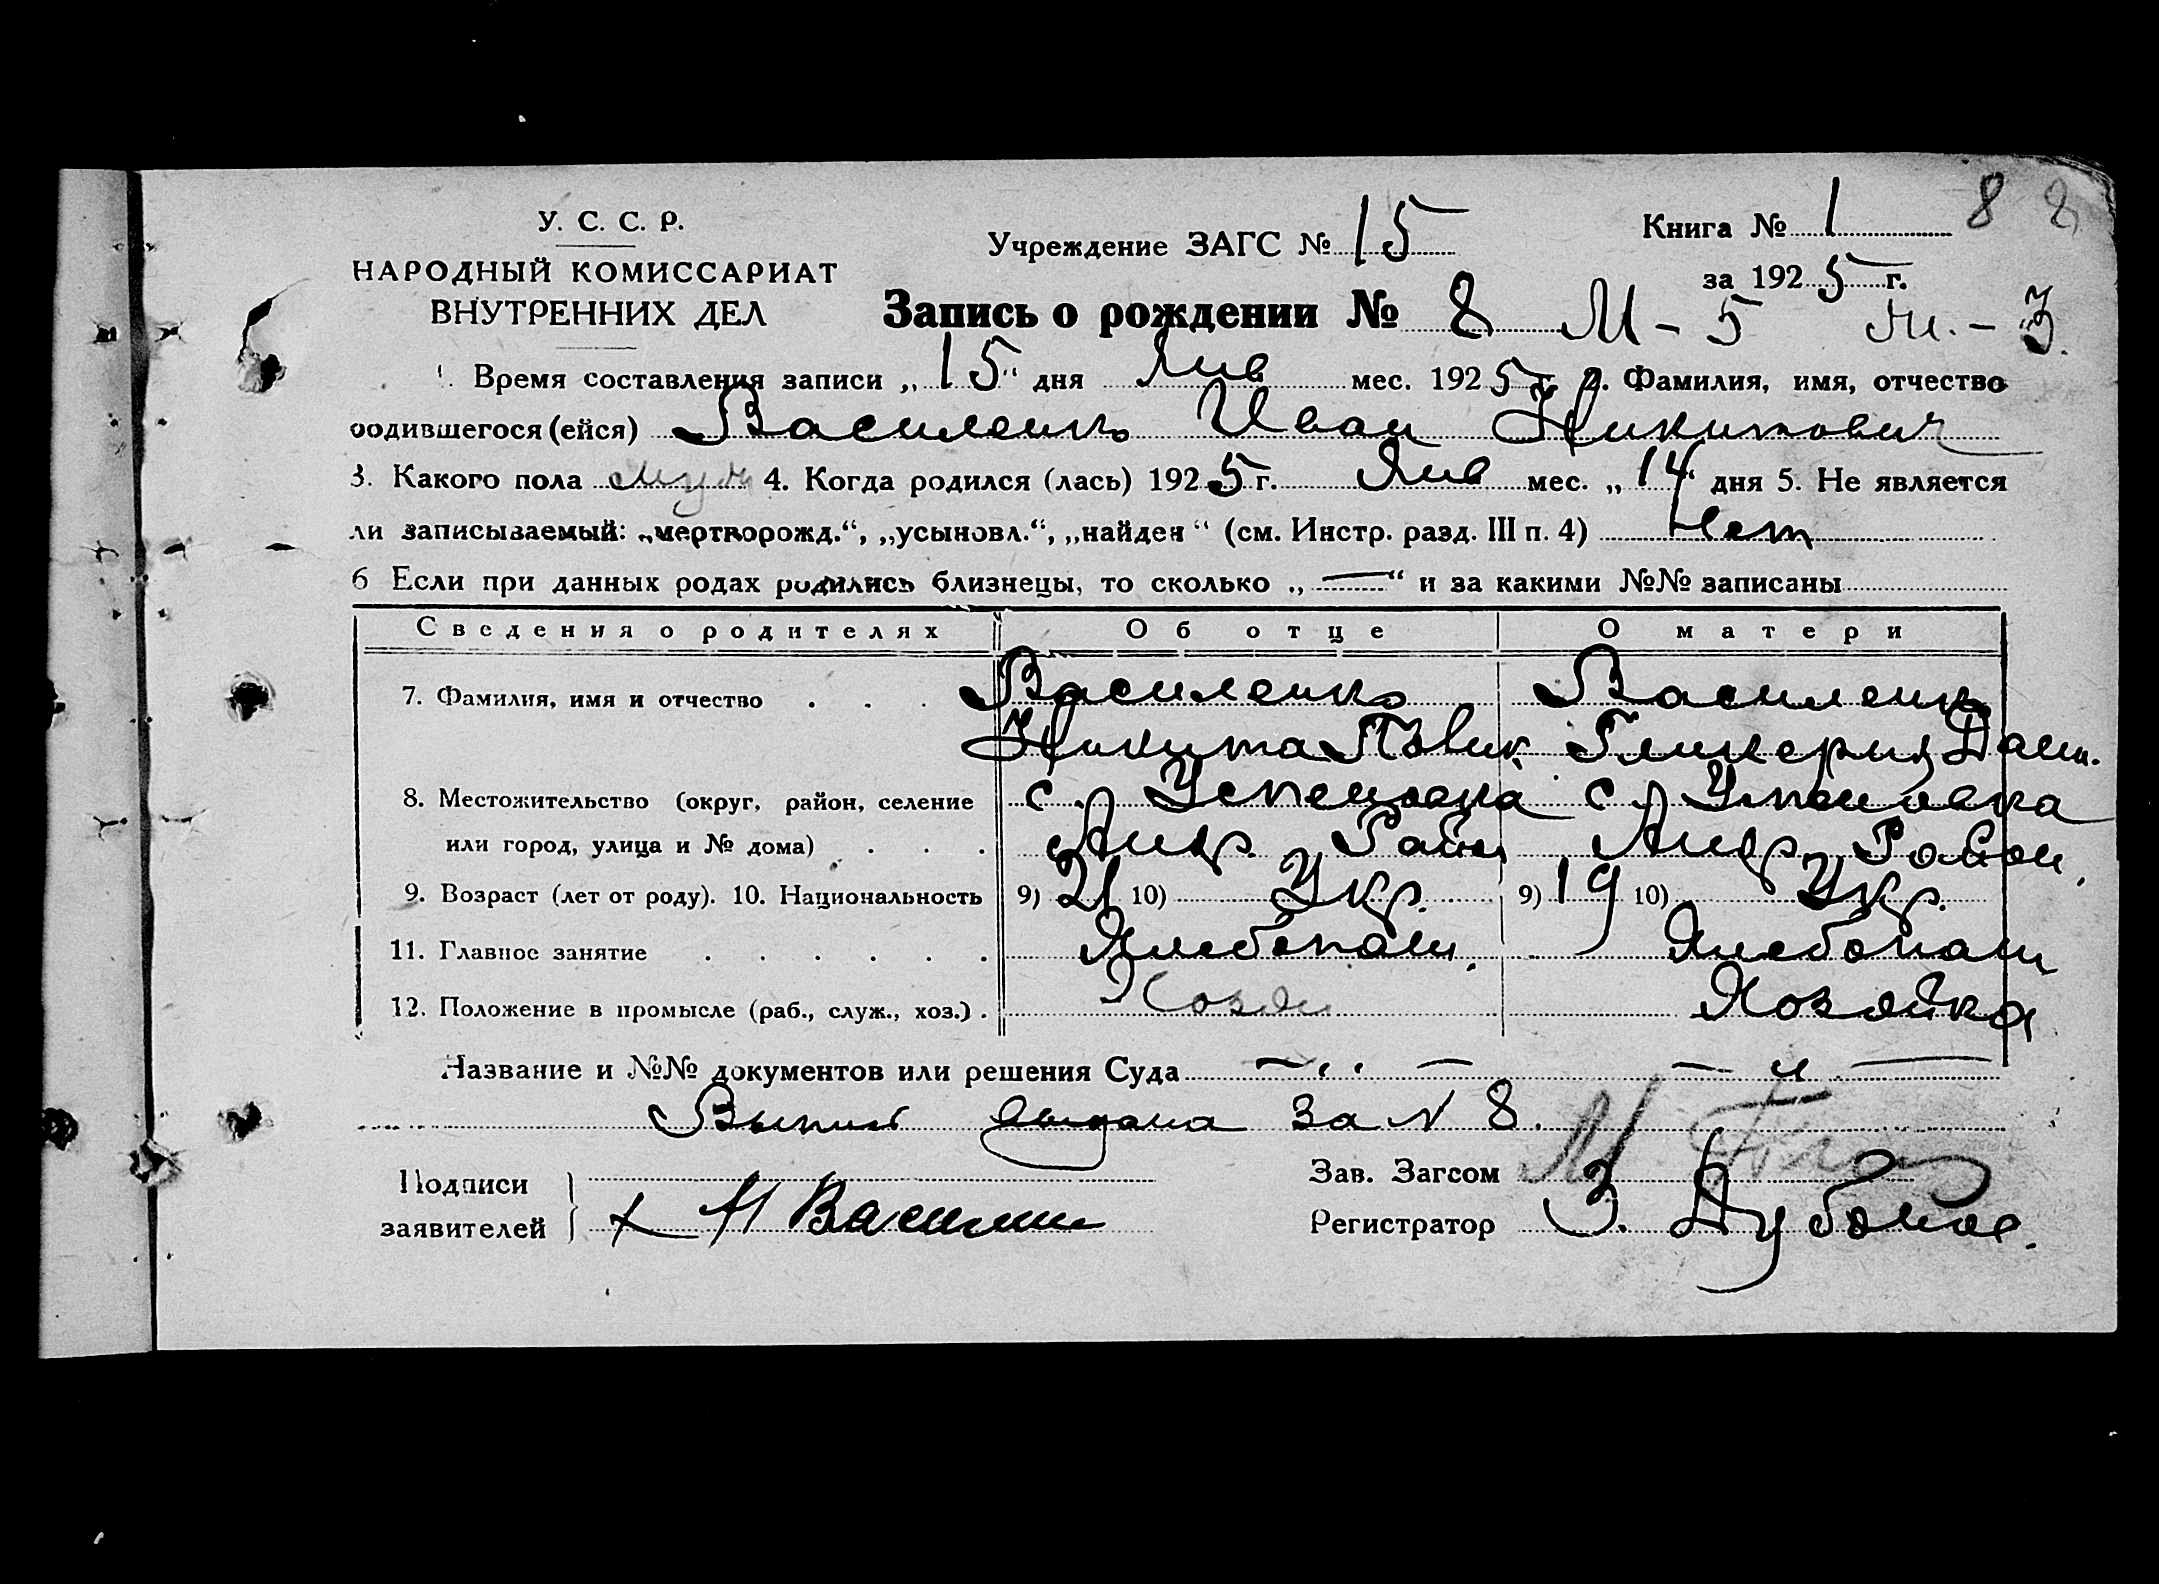 8 8
У. С. С. Р.
Учреждение ЗАГС № 15
Книга № 1
НАРОДНЫЙ КОМИССАРИАТ
за 1925 г.
ВНУТРЕННИХ ДЕЛ
Запись о рождении № 8 М - 5 - 3
Время составления записи „15“ дня Янв мес. 1925 г. 2. Фамилия, имя, отчество
родившегося (ейся) Василенко Иван Никитович
3. Какого пола муж 4. Когда родился (лась) 1925 г. Янв мес. „14“ дня 5. Не является
ли записываемый: „мертворожд.“, „усыновл.“, „найден“ (см. Инстр. разд. III п. 4) Нет
6 Если при данных родах родились близнецы, то сколько „—“ и за какими №№ записаны
Сведения о родителях Об отце О матери
7. Фамилия, имя и отчество . . . Василенко Василенко
Никита Гликерия
8. Местожительство (округ, район, селение с. с.
или город, улица и № дома) . . . Район Район
9. Возраст (лет от роду). 10. Национальность 9) 21 10) Укр. 9) 19 10) Укр.
11. Главное занятие . . . . . . Хлебопаш. Хлебопаш
12. Положение в промысле (раб., служ., хоз.) . Хозяин Хозяйка
Название и №№ документов или решения Суда — „ — — „ —
Выпись выдана за № 8.
Подписи
Зав. Загсом М.
заявителей
Регистратор З.